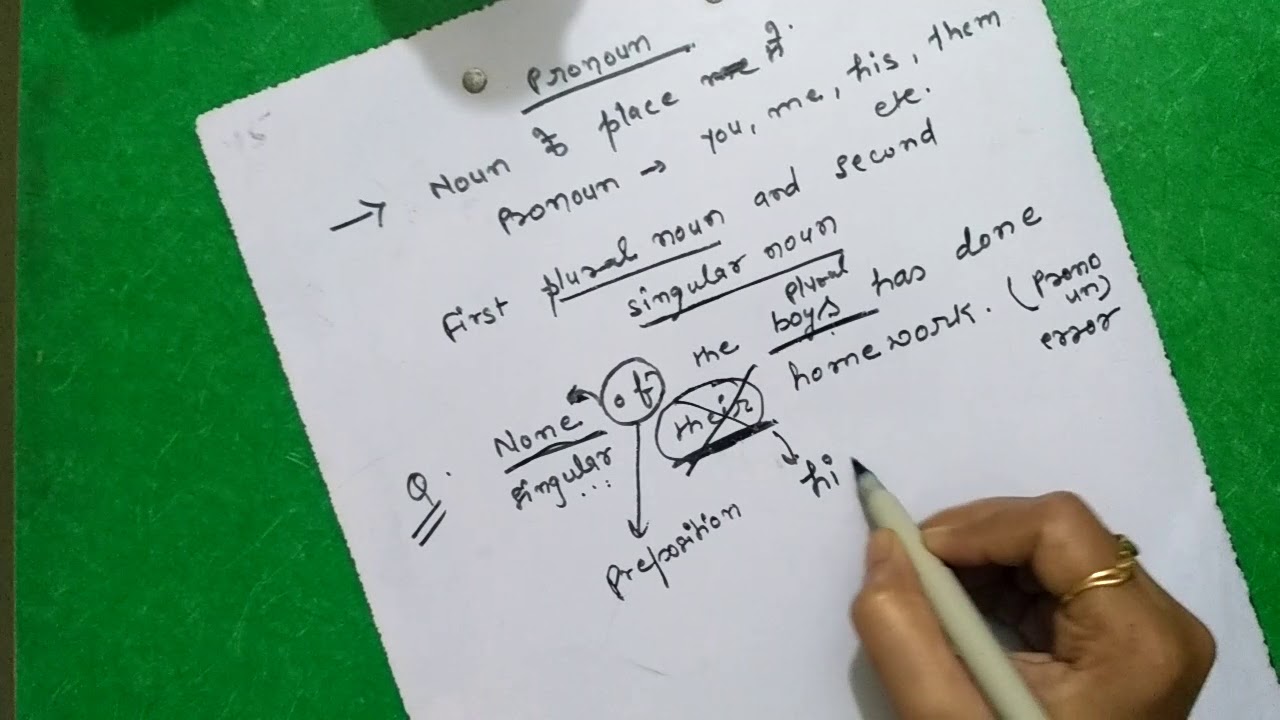 Pronoun
→ Noun के place में.
Pronoun → you, me, his, them
etc.
First plural noun and second
singular noun
plural
Q. None of the boys has done
their home work. (Prono
un)
error
singular...
hi
preposition